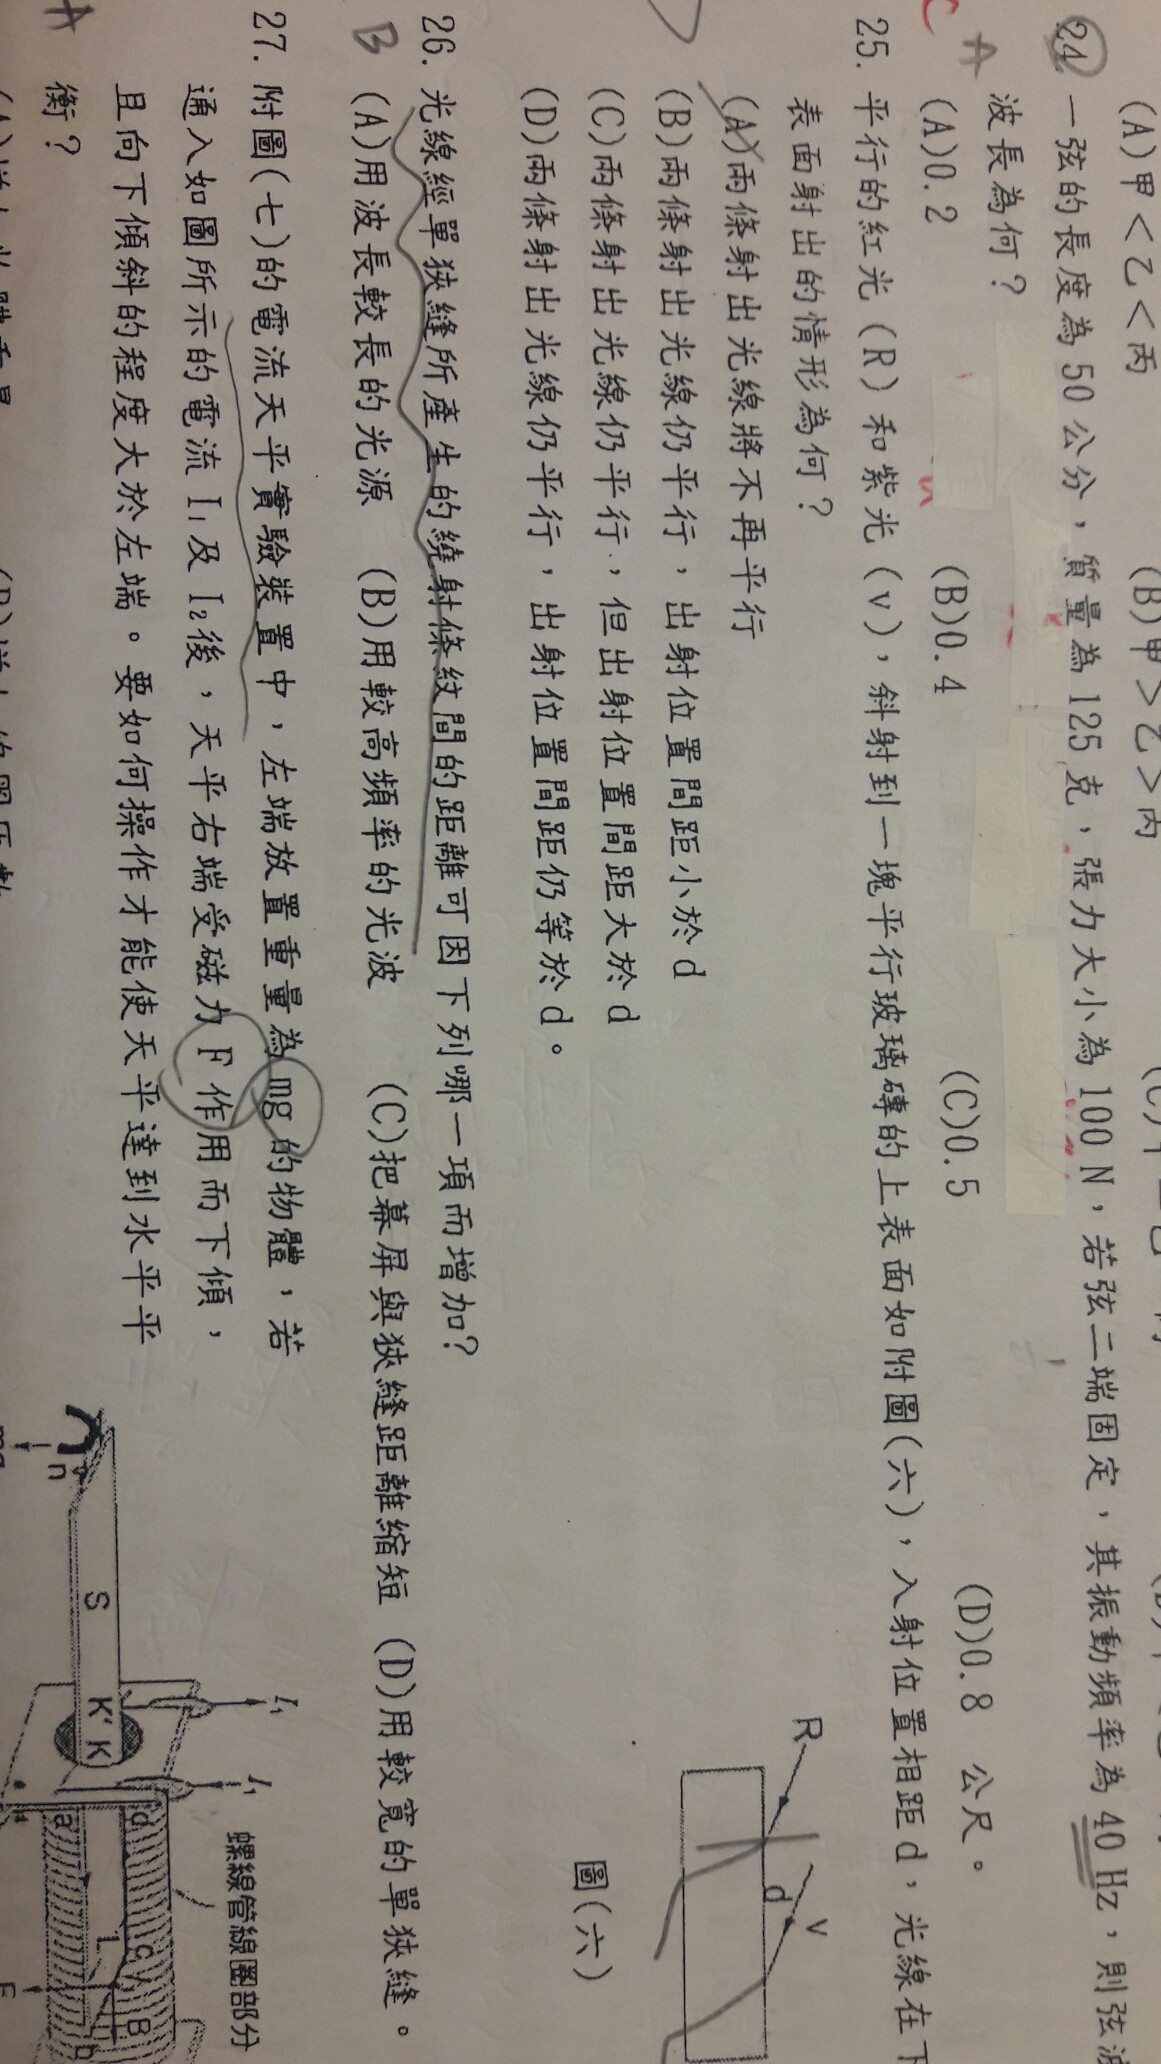 (A)甲<乙<丙 (B)甲>乙>丙
24. 一弦的長度為 50 公分，質量為 125 克，張力大小為 100 N，若弦二端固定，其振動頻率為 40 Hz，則弦波
波長為何？
A
C
(A)0.2 (B)0.4 (C)0.5 (D)0.8 公尺。
25. 平行的紅光（R）和紫光（v），斜射到一塊平行玻璃磚的上表面如附圖(六)，入射位置相距 d，光線在下
表面射出的情形為何？
(A)兩條射出光線將不再平行
(B)兩條射出光線仍平行，出射位置間距小於 d
(C)兩條射出光線仍平行，但出射位置間距大於 d
(D)兩條射出光線仍平行，出射位置間距仍等於 d。
R
v
d
圖(六)
26. 光線經單狹縫所產生的繞射條紋間的距離可因下列哪一項而增加？
B
(A)用波長較長的光源 (B)用較高頻率的光波 (C)把幕屏與狹縫距離縮短 (D)用較寬的單狹縫。
27. 附圖(七)的電流天平實驗裝置中，左端放置重量為 mg 的物體，若
通入如圖所示的電流 I₁及 I₂後，天平右端受磁力 F 作用而下傾，
且向下傾斜的程度大於左端。要如何操作才能使天平達到水平平
衡？
A
n
S
K' K
I₁
I₁
螺線管線圈部分
d
a
C
L
B
b
F
mg